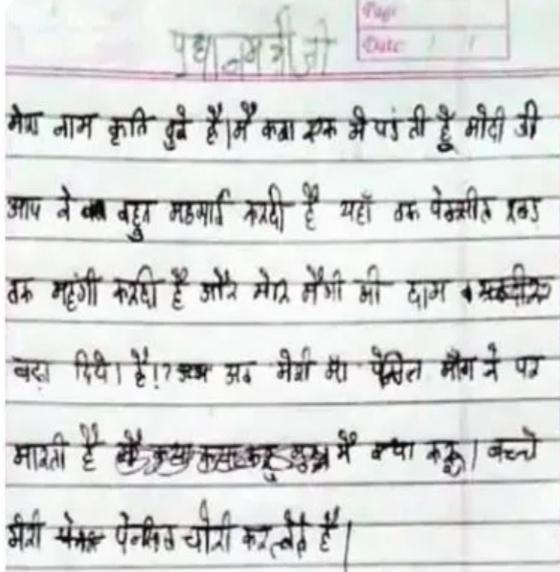 Page
Date / /
प्रधानमंत्री जी
मेरा नाम कृति दुबे है। मै कक्षा एक मे पडं ती हूँ मोदी जी
आप ने बहुत महगाई करदी है यहाँ तक पेन्सील रबड़
तक महंगी करदी है और मेरि मैगी की दाम
बढ़ा दिये। है!? अब मेरी माँ पेंसिल माँग ने पर
मारती है मै क्या करू। बच्चे
मेरी पेन्सिल चोरी कर लेते है।